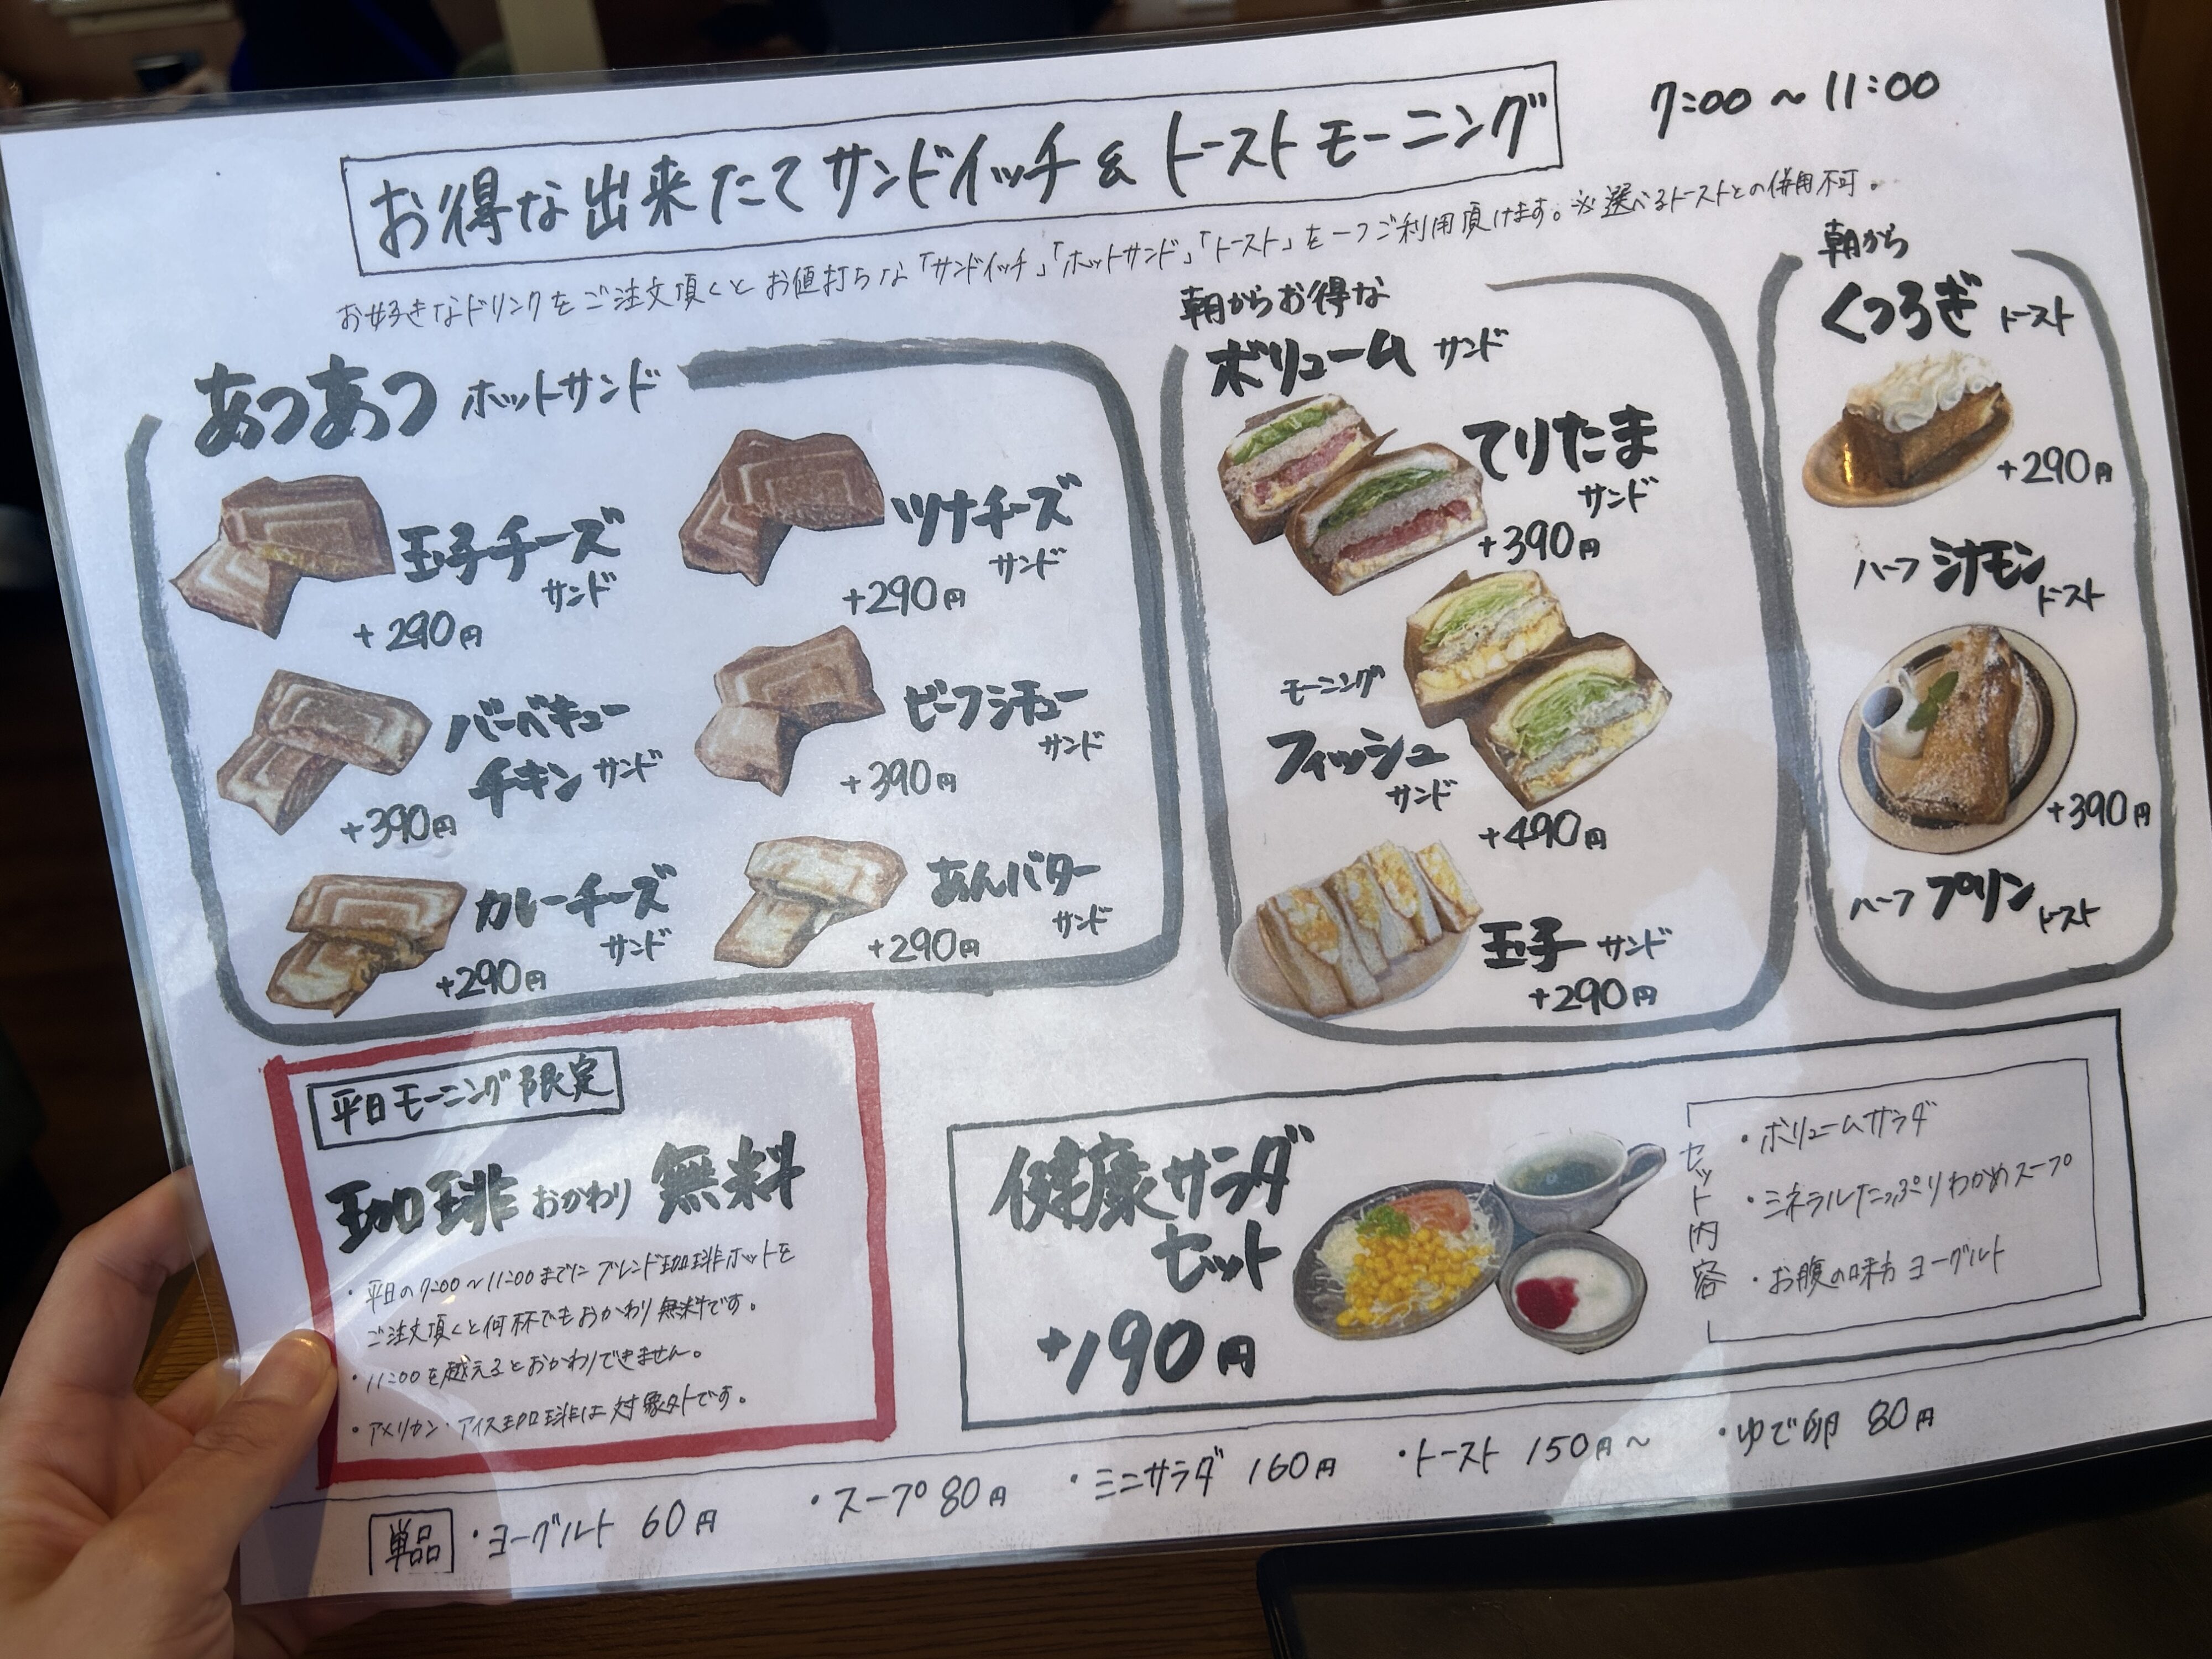 お得な出来たてサンドイッチ&トーストモーニング
7:00〜11:00
お好きなドリンクをご注文頂くとお値打ちな「サンドイッチ」「ホットサンド」「トースト」を一つご利用頂けます。※選べるトーストとの併用不可。
あつあつ ホットサンド
玉子チーズ
サンド
+290円
ツナチーズ
サンド
+290円
バーベキュー
チキン サンド
+390円
ビーフシチュー
サンド
+390円
カレーチーズ
サンド
+290円
あんバター
サンド
+290円
朝からお得な
ボリューム サンド
てりたま
サンド
+390円
モーニング
フィッシュ
サンド
+490円
玉子 サンド
+290円
朝から
くつろぎ トースト
+290円
ハーフ シナモン
トースト
+390円
ハーフ プリン
トースト
平日モーニング限定
珈琲 おかわり 無料
・平日の7:00〜11:00までにブレンド珈琲ホットを
ご注文頂くと何杯でもおかわり無料です。
・11:00を越えるとおかわりできません。
・アメリカン・アイス珈琲は対象外です。
健康サラダ
セット
+190円
セット内容
・ボリュームサラダ
・ミネラルたっぷりわかめスープ
・お腹の味方 ヨーグルト
単品 ・ヨーグルト 60円 ・スープ 80円 ・ミニサラダ 160円 ・トースト 150円〜 ・ゆで卵 80円